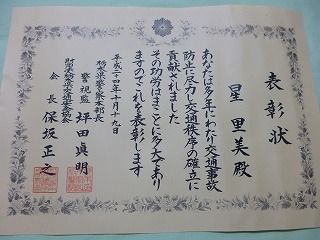 表彰状
星里美殿
あなたは多年にわたり交通事故
防止に尽力し交通秩序の確立に
貢献されました
その功労はまことに多大であり
ますのでこれを表彰します
平成二十四年十月十九日
栃木県警察本部長
警視監 坪田眞明
財団法人栃木県交通安全協会
会長 保坂正之